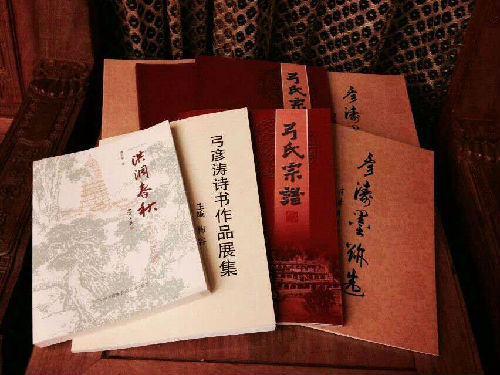 洪洞春秋
弓彦涛诗书作品展集
主编
弓氏宗譜
彦涛墨跡选
弓氏宗
彦涛